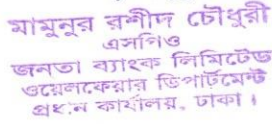 মামুনুর রশীদ চৌধুরী
এসপিও
জনতা ব্যাংক লিমিটেড
ওয়েলফেয়ার ডিপার্টমেন্ট
প্রধান কার্যালয়, ঢাকা।